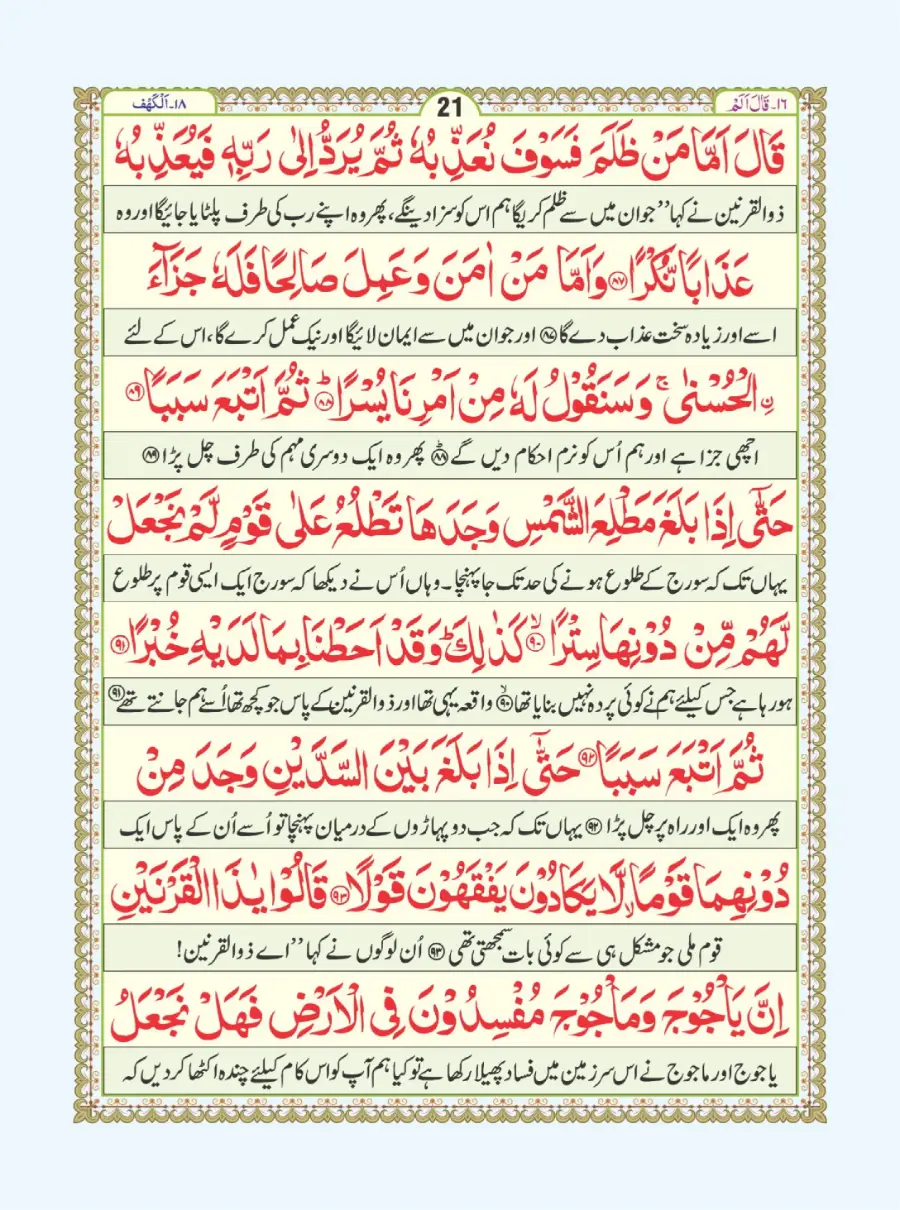 ١٦۔ قَالَ اَلَمْ
21
١٨۔ اَلْكَهْف
قَالَ اَمَّا مَنْ ظَلَمَ فَسَوْفَ نُعَذِّبُهٗ ثُمَّ يُرَدُّ اِلٰى رَبِّهٖ فَيُعَذِّبُهٗ
ذوالقرنین نے کہا ’’جو ان میں سے ظلم کریگا ہم اس کو سزا دینگے، پھر وہ اپنے رب کی طرف پلٹایا جائیگا اور وہ
عَذَابًا نُّكْرًا ﴿٨٧﴾ وَاَمَّا مَنْ اٰمَنَ وَعَمِلَ صَالِحًا فَلَهٗ جَزَآءَ
اسے اور زیادہ سخت عذاب دے گا ﴿٨٧﴾ اور جو ان میں سے ایمان لائیگا اور نیک عمل کرے گا، اس کے لئے
ۨالْحُسْنٰى ۚ وَسَنَقُوْلُ لَهٗ مِنْ اَمْرِنَا يُسْرًا ﴿٨٨﴾ ؕ ثُمَّ اَتْبَعَ سَبَبًا ﴿٨٩﴾
اچھی جزا ہے اور ہم اُس کو نرم احکام دیں گے ﴿٨٨﴾ پھر وہ ایک دوسری مہم کی طرف چل پڑا ﴿٨٩﴾
حَتّٰٓى اِذَا بَلَغَ مَطْلِعَ الشَّمْسِ وَجَدَهَا تَطْلُعُ عَلٰى قَوْمٍ لَّمْ نَجْعَلْ
یہاں تک کہ سورج کے طلوع ہونے کی حد تک جا پہنچا۔ وہاں اُس نے دیکھا کہ سورج ایک ایسی قوم پر طلوع
لَّهُمْ مِّنْ دُوْنِهَا سِتْرًا ﴿٩٠﴾ ۙ كَذٰلِكَ ؕ وَقَدْ اَحَطْنَا بِمَا لَدَيْهِ خُبْرًا ﴿٩١﴾
ہو رہا ہے جس کیلئے ہم نے کوئی پردہ نہیں بنایا تھا ﴿٩٠﴾ ۙ واقعہ یہی تھا اور ذوالقرنین کے پاس جو کچھ تھا اُسے ہم جانتے تھے ﴿٩١﴾
ثُمَّ اَتْبَعَ سَبَبًا ﴿٩٢﴾ حَتّٰٓى اِذَا بَلَغَ بَيْنَ السَّدَّيْنِ وَجَدَ مِنْ
پھر وہ ایک اور راہ پر چل پڑا ﴿٩٢﴾ یہاں تک کہ جب دو پہاڑوں کے درمیان پہنچا تو اُسے اُن کے پاس ایک
دُوْنِهِمَا قَوْمًا ۙ لَّا يَكَادُوْنَ يَفْقَهُوْنَ قَوْلًا ﴿٩٣﴾ قَالُوْا يٰذَا الْقَرْنَيْنِ
قوم ملی جو مشکل ہی سے کوئی بات سمجھتی تھی ﴿٩٣﴾ اُن لوگوں نے کہا ’’اے ذوالقرنین!
اِنَّ يَاْجُوْجَ وَمَاْجُوْجَ مُفْسِدُوْنَ فِى الْاَرْضِ فَهَلْ نَجْعَلُ
یاجوج اور ماجوج نے اس سرزمین میں فساد پھیلا رکھا ہے تو کیا ہم آپ کو اس کام کیلئے چندہ اکٹھا کردیں کہ